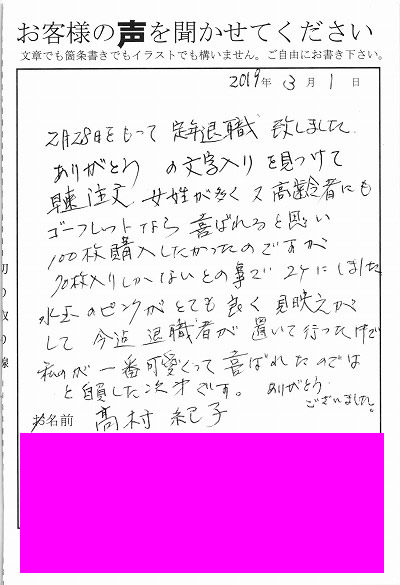 お客様の声を聞かせてください
文章でも箇条書きでもイラストでも構いません。ご自由にお書き下さい。
2019年 3月 1日
2月28日をもって 定年退職 致しました
ありがとう の文字入りを見つけて
早速注文 女性が多く又高齢者にも
ゴーフレットなら 喜ばれると思い
100枚購入したかったのですが
70枚入りしかないとの事で 2ケにしました
水玉のピンクがとても良く見映えが
して 今迄 退職者が 置いて行ったけど
私のが一番可愛くって喜ばれたのでは
と自負した次才です。 ありがとう
ございました。
お名前 髙村 紀子
切り取り線